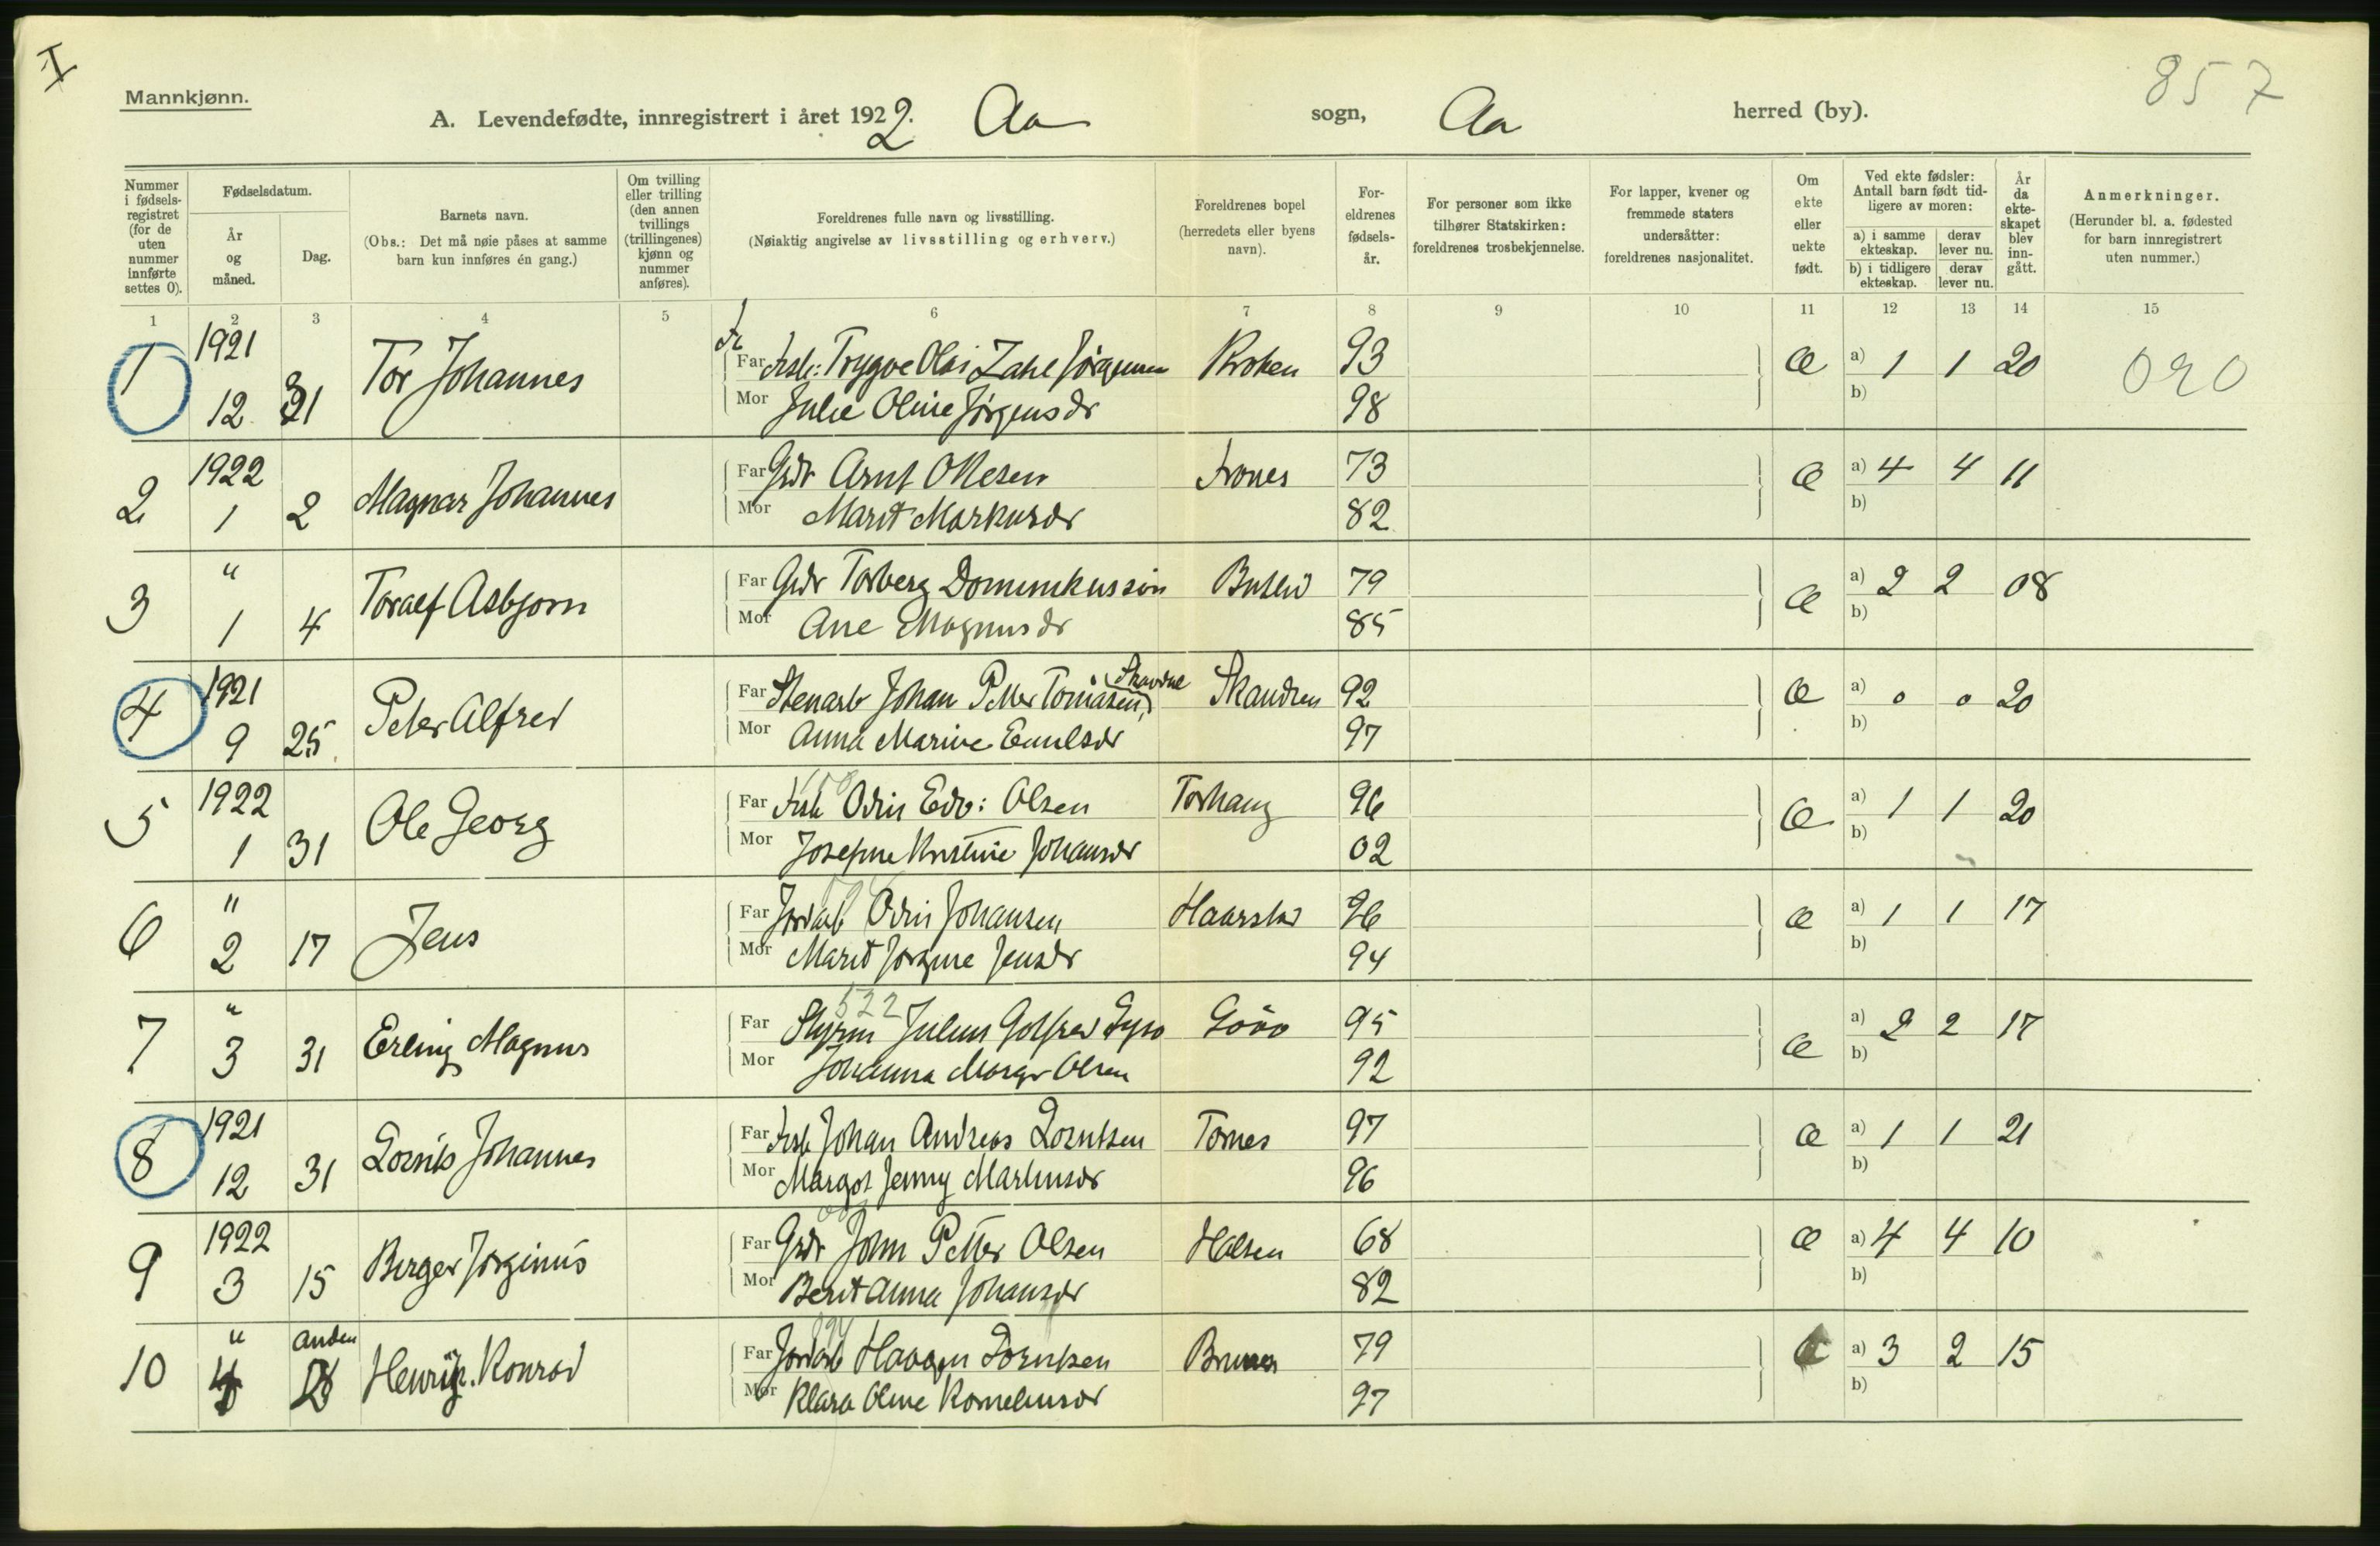 I
857
Mannkjønn.
A. Levendefødte, innregistrert i året 1922. Aa sogn, Aa herred (by).
Nummer i fødsels-registret (for de uten nummer innførte settes 0).
Fødselsdatum.
År og måned.
Dag.
Barnets navn.
(Obs.: Det må nøie påses at samme barn kun innføres én gang.)
Om tvilling eller trilling (den annen tvillings (trillingenes) kjønn og nummer anføres).
Foreldrenes fulle navn og livsstilling.
(Nøiaktig angivelse av livsstilling og erhverv.)
Foreldrenes bopel (herredets eller byens navn).
For-eldrenes fødsels-år.
For personer som ikke tilhører Statskirken: foreldrenes trosbekjennelse.
For lapper, kvener og fremmede staters undersåtter: foreldrenes nasjonalitet.
Om ekte eller uekte født.
Ved ekte fødsler: Antall barn født tid-ligere av moren:
a) i samme ekteskap.
derav lever nu.
b) i tidligere ekteskap.
derav lever nu.
År da ekte-skapet blev inn-gått.
Anmerkninger.
(Herunder bl. a. fødested for barn innregistrert uten nummer.)
1 2 3 4 5 6 7 8 9 10 11 12 13 14 15
1 1921 12 31 Tor Johannes Far Fisk: Trygve Olai Zahl Jørgensen Kroken 93 Œ a) 1 1 20 020
Mor Julie Oline Jørgensdr 98 b)
2 1922 1 2 Magnar Johannes Far Grdr Arnt Olesen 73 Œ a) 4 4 11
Mor Marit Markusdr 82 b)
3 " 1 4 Toralf Asbjorn Far Grdr Torberg Dominikussøn 79 Œ a) 2 2 08
Mor Ane Magnusdr 85 b)
4 1921 9 25 Peter Alfred Far Stenarb Johan Petter Tomasen Skandsen 92 Œ a) 0 0 20
Mor Anna Marine Emilsdr 97 b)
5 1922 1 31 Ole Georg Far Fisk Odin Edv: Olsen Torhaug 96 Œ a) 1 1 20
Mor Josefine Kristine Johansdr 02 b)
6 " 2 17 Jens Far Jordarb Odin Johansen Haarstad 96 Œ a) 1 1 17
Mor Marit Jørgine Jensdr 94 b)
522
7 " 3 31 Erling Magnus Far Styrm Julius Gotfred 95 Œ a) 2 2 17
Mor Johanna Margr Olsen 92 b)
8 1921 12 31 Lornts Johannes Far Fisk Johan Andreas Lorntsen Tornes 97 Œ a) 1 1 21
Mor Margot Jenny Martinsdr 96 b)
9 1922 3 15 Birger Jørginius Far Grdr John Petter Olsen Halsen 68 Œ a) 4 4 10
Mor Berit Anna Johansdr 82 b)
10 " 4 anden Henrik Konrad Far Jordarb Haagen Lorntsen 79 Œ a) 3 2 15
Mor Klara Oline Korneliusdr 97 b)